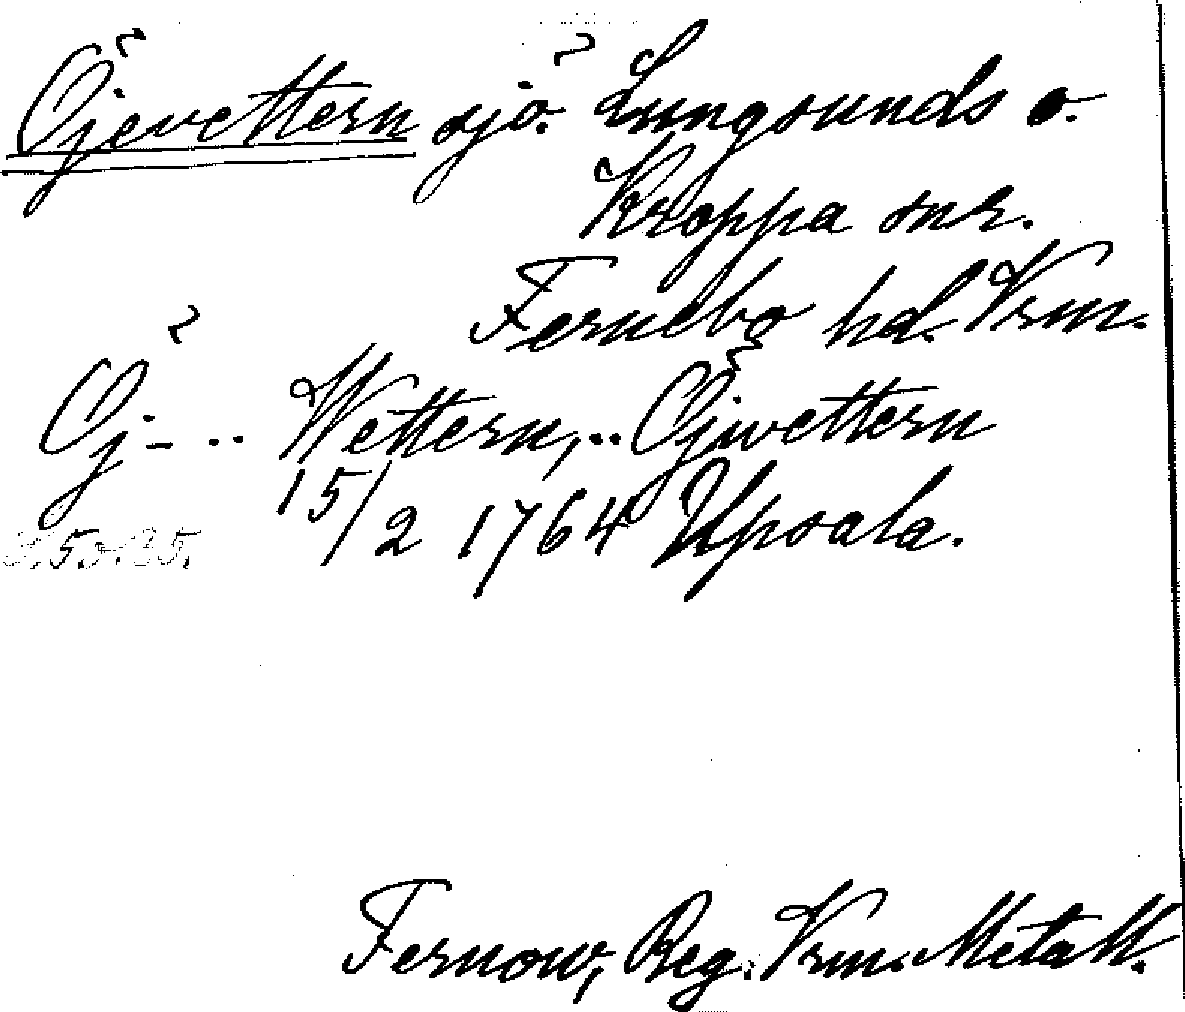 Öjevettern sjö. Lungsunds o.
Kroppa snr.
Fernebo hd. Vrm.
Öj- .. Wettern, .. Öjwettern
15/2 1764 Upsala.
Fernow, Reg. Vrm. Metall.